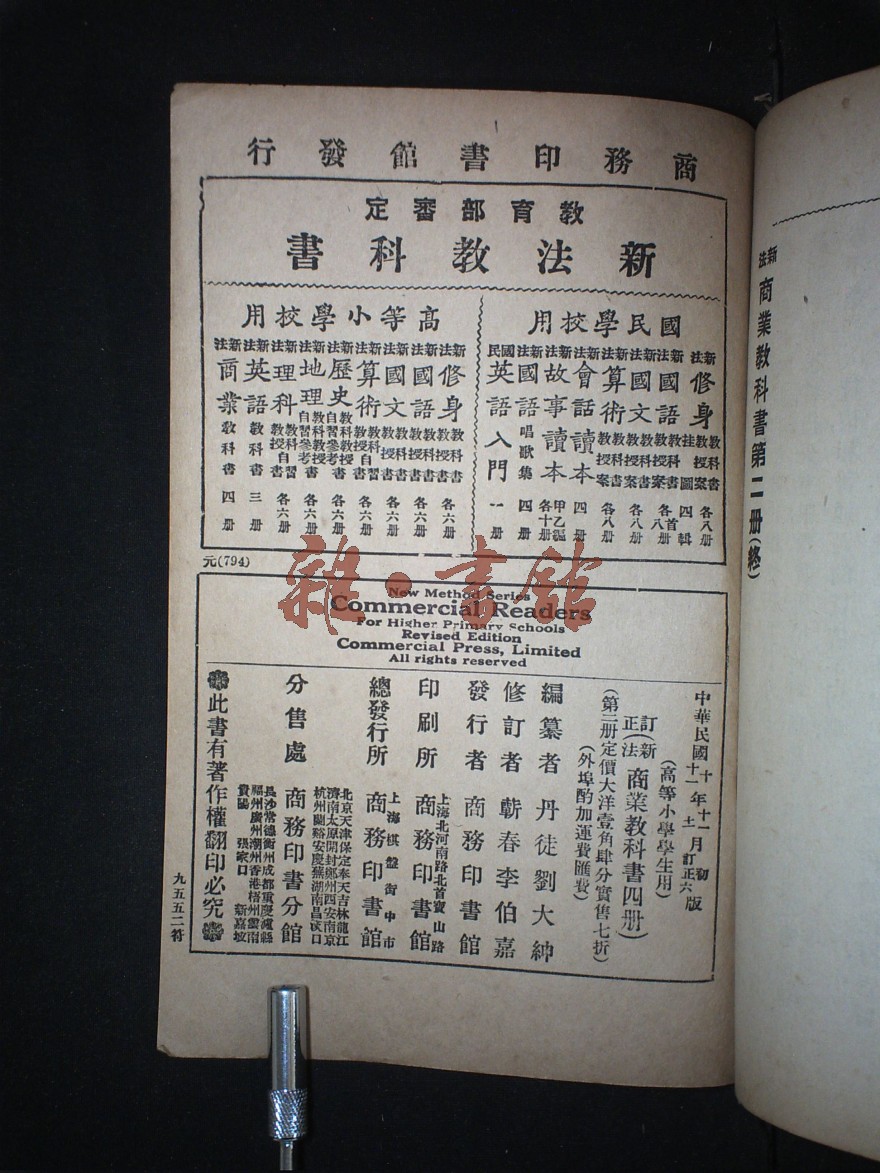 商務印書館發行
教育部審定
新法教科書
國民學校用
新法修身教科書教授案各八册
挂圖四輯
新法國語教科書教授案首各八册
新法國文教科書教授案各八册
新法算術教科書教授案各八册
新法會話讀本四册
新法故事讀本甲乙編各十册
新法國語唱歌集四册
國民英語入門一册
高等小學校用
新法修身教科書教授書各六册
新法國語教科書教授書各六册
新法國文教科書教授書各六册
新法算術教科自習教授書各六册
新法歷史教科教授自習參考書各六册
新法地理教科教授自習參考書各六册
新法理科教科自習教授書各六册
新法英語教科書三册
新法商業教科書四册
元(794)
New Method Series
Commercial Readers
For Higher Primary Schools
Revised Edition
Commercial Press, Limited
All rights reserved
中華民國十年十一月初版
十一年十二月訂正六版
(高等小學學生用)
訂正(新法)商業教科書四册)
(第二册定價大洋壹角肆分實售七折)
(外埠酌加運費匯費)
編纂者 丹徒劉大紳
修訂者 蘄春李伯嘉
發行者 商務印書館
印刷所 上海北河南路北首寶山路 商務印書館
總發行所 上海棋盤街中市 商務印書館
分售處 北京天津保定奉天吉林龍江
濟南太原開封鄭州西安南京
杭州蘭谿安慶蕪湖南昌漢口
商務印書分館
長沙常德衡州成都重慶瀘縣
福州廣州潮州香港梧州雲南
貴陽 張家口 新嘉坡
此書有著作權翻印必究
九五五二符
新法商業教科書第二册(終)
雜·書館